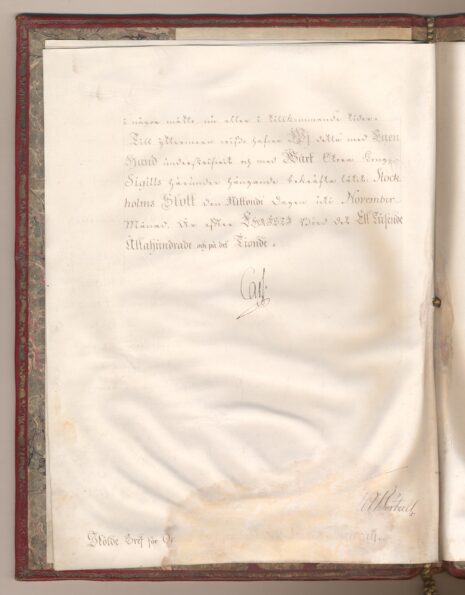 i några måtto, nu eller i tillkommande tider.
Till yttermera visso hafve Wi detta med Egen
Hand underskrifvit och med Wårt Större Kongl.
Sigills härunder hängande bekräfta låtit. Stock-
holms Slott den Nittonde Dagen uti November
Månad. År efter Christi Börd det Ett Tusende
Åttahundrade och på det Tionde.
Carl
Sköldebref för